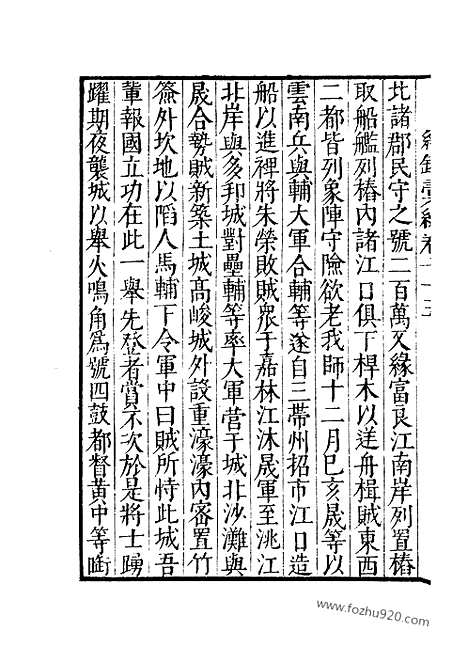 北諸郡民守之號二百萬又緣富良江南岸列置樁
取船艦列樁内諸江口俱下桿木以逹舟楫賊東西
二都皆列象陣守險欲老我師十二月巳亥晟等以
雲南兵與輔大軍合輔等遂自三帶州招市江口造
船以進裨將朱榮敗賊衆于嘉林江沐晟軍至洮江
北岸與多邦城對壘輔等率大軍营于城北沙灘與
晟合勢賊新築土城高峻城外設重濠濠内密置竹
簽外坎地以陷人馬輔下令軍中曰賊所恃此城吾
輩報國立功在此一舉先登者賞不次於是將士踴
躍期夜襲城以舉火鳴角爲號四鼓都督黃中等銜
www.fozhu920.com